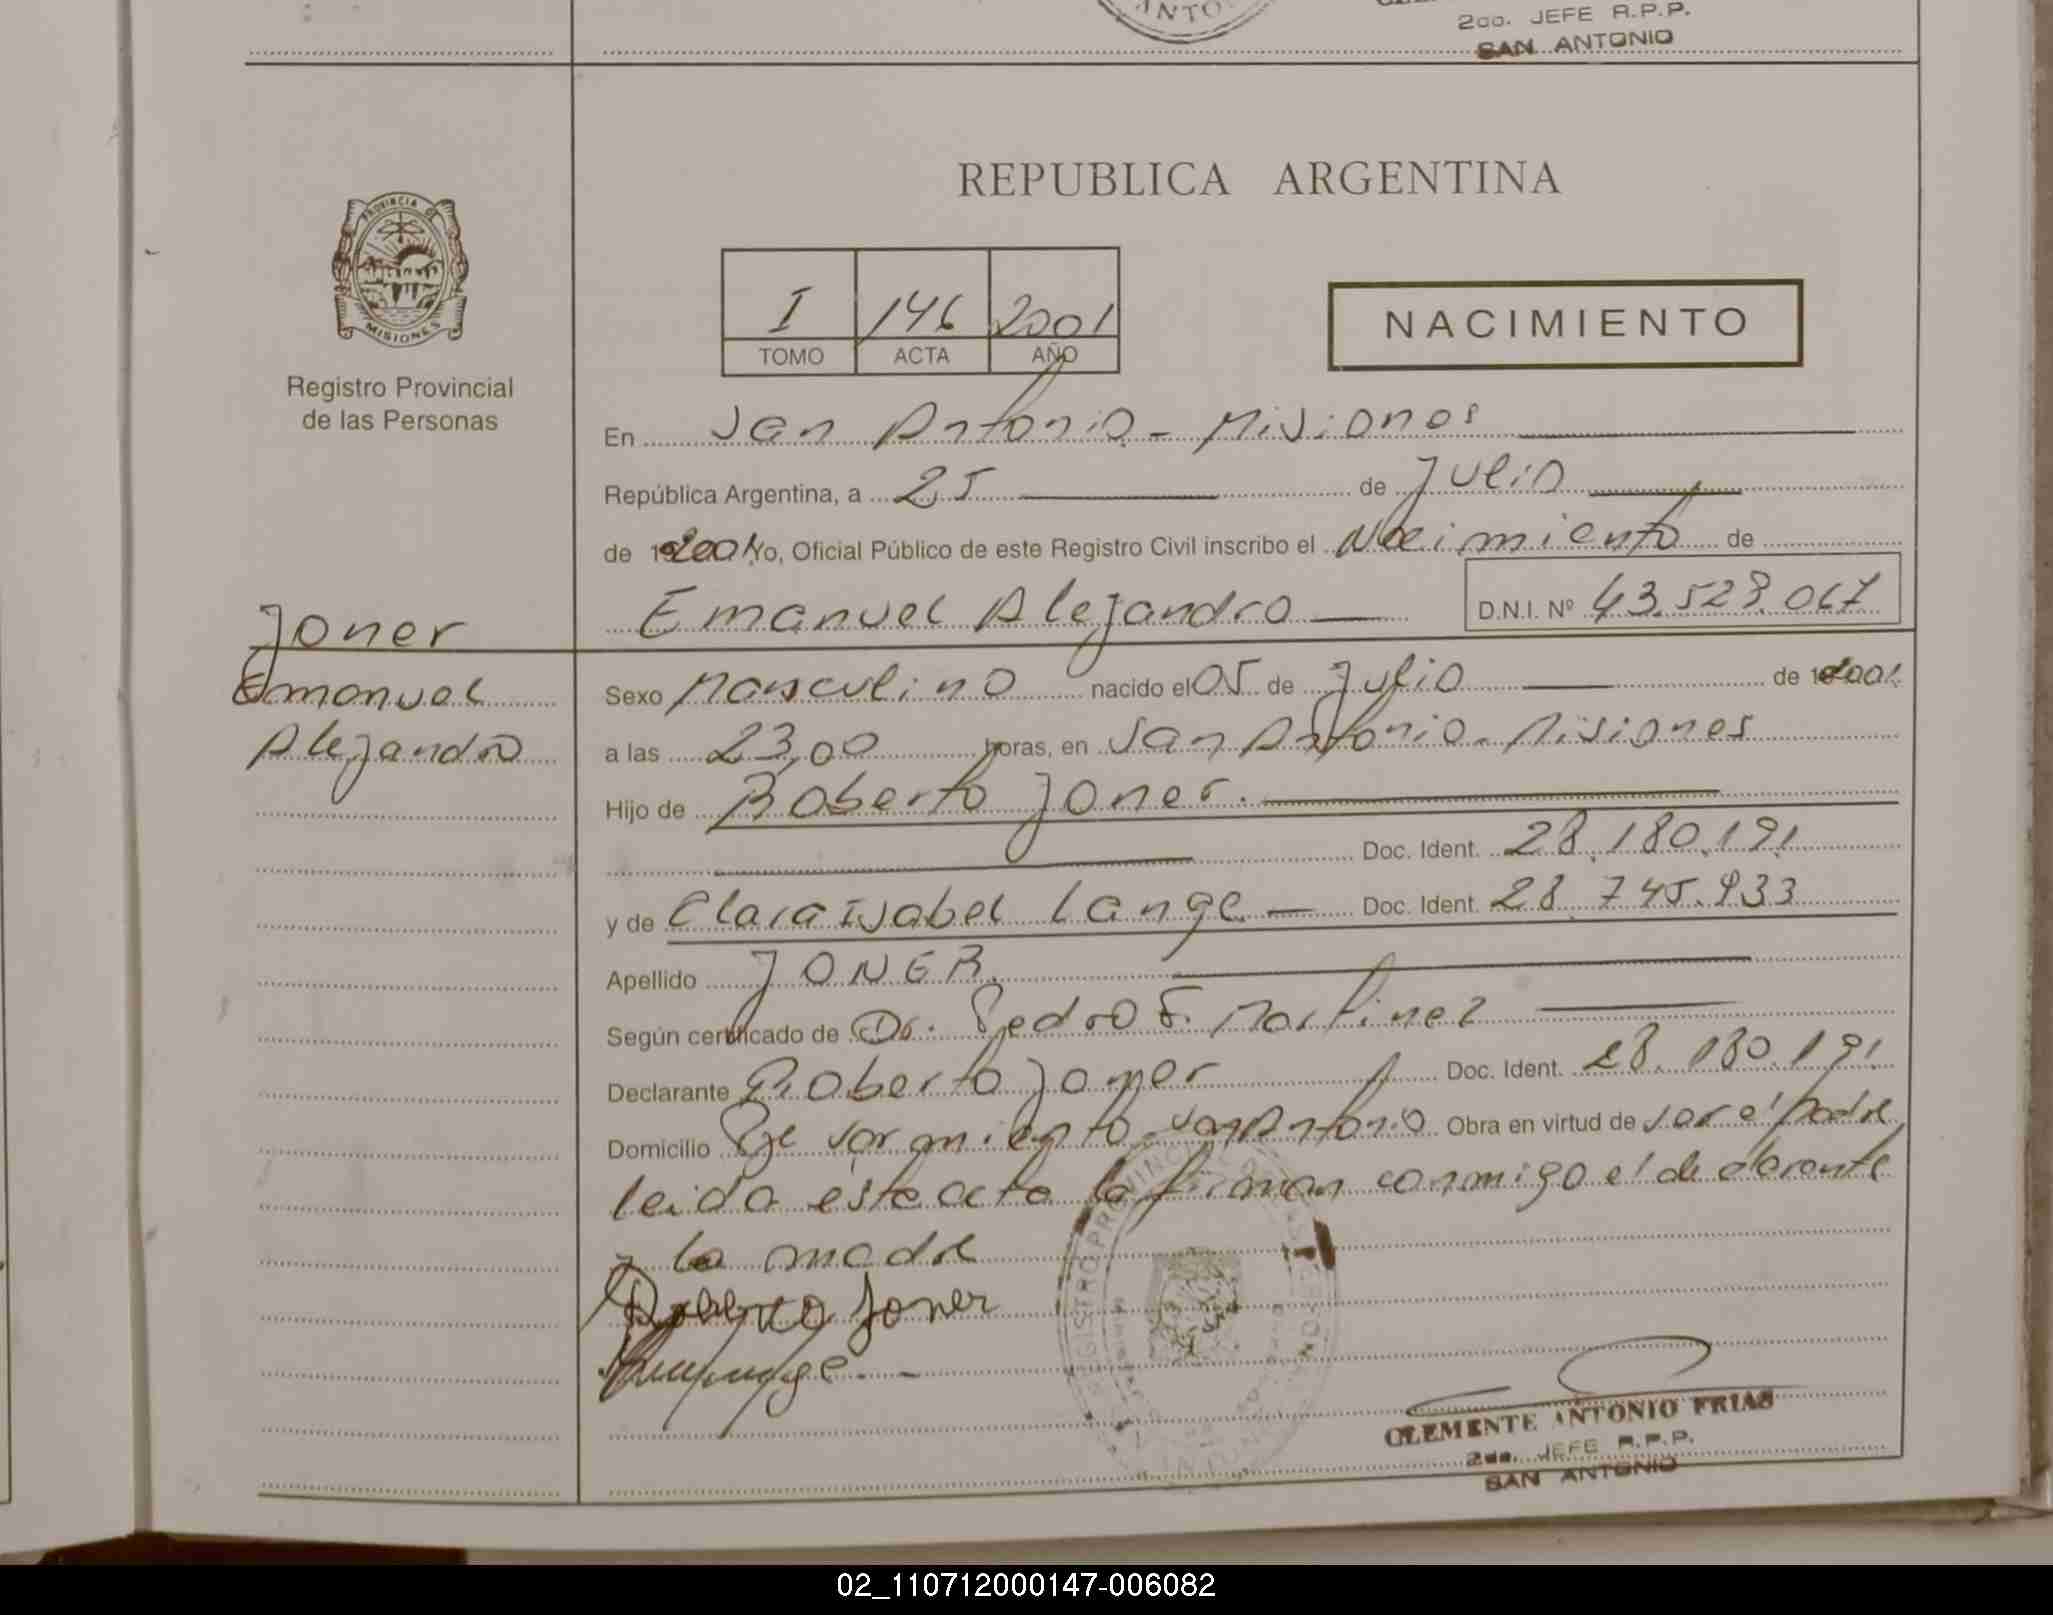 2do. JEFE R.P.P.
SAN ANTONIO
PROVINCIA DE
MISIONES
Registro Provincial
de las Personas
REPUBLICA ARGENTINA
I 146 2001
TOMO ACTA AÑO
NACIMIENTO
En San Antonio - Misiones
República Argentina, a 25 de Julio
de 2001 Yo, Oficial Público de este Registro Civil inscribo el Nacimiento de
Emanuel Alejandro D.N.I. Nº 43.528.067
Joner
Emanuel
Alejandro
Sexo Masculino nacido el 05 de Julio de 2001
a las 23,00 horas, en San Antonio - Misiones
Hijo de Roberto Joner.
Doc. Ident. 28.180.191
y de Clara Isabel Lange Doc. Ident. 28.745.933
Apellido JONER.
Según certificado de Dr. Pedro F. Martinez
Declarante Roberto Joner Doc. Ident. 28.180.191
Domicilio Pje Sarmiento - San Antonio Obra en virtud de ser el padre
leida este acta la firman conmigo el declarante
y la madre
Roberto Joner
CLEMENTE ANTONIO FRIAS
2do. JEFE R.P.P.
SAN ANTONIO
02_110712000147-006082